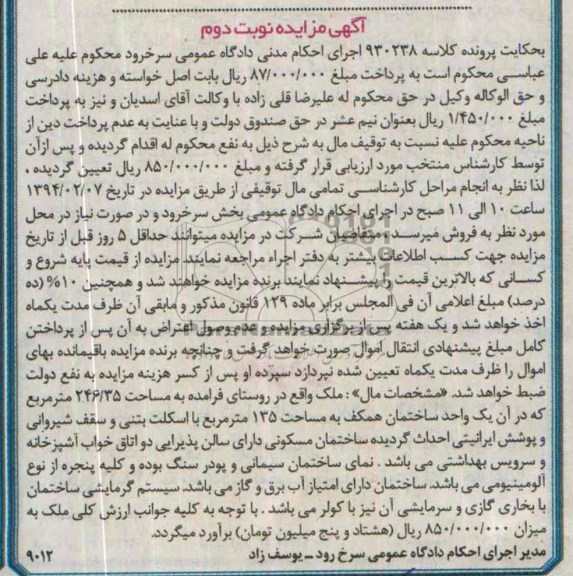 آگهی مزایده نوبت دوم
بحکایت پرونده کلاسه ۹۳۰۲۳۸ اجرای احکام مدنی دادگاه عمومی سرخرود محکوم علیه علی
عباسی محکوم است به پرداخت مبلغ ۸۷/۰۰۰/۰۰۰ ریال بابت اصل خواسته و هزینه دادرسی
و حق الوکاله وکیل در حق محکوم له علیرضا قلی زاده با وکالت آقای اسدیان و نیز به پرداخت
مبلغ ۱/۴۵۰/۰۰۰ ریال بعنوان نیم عشر در حق صندوق دولت و با عنایت به عدم پرداخت دین از
ناحیه محکوم علیه نسبت به توقیف مال به شرح ذیل به نفع محکوم له اقدام گردیده و پس ازآن
توسط کارشناس منتخب مورد ارزیابی قرار گرفته و مبلغ ۸۵۰/۰۰۰/۰۰۰ ریال تعیین گردیده ،
لذا نظر به انجام مراحل کارشناسی تمامی مال توقیفی از طریق مزایده در تاریخ ۱۳۹۴/۰۲/۰۷
ساعت ۱۰ الی ۱۱ صبح در اجرای احکام دادگاه عمومی بخش سرخرود و در صورت نیاز در محل
مورد نظر به فروش میرسد ، متقاضیان شرکت در مزایده میتوانند حداقل ۵ روز قبل از تاریخ
مزایده جهت کسب اطلاعات بیشتر به دفتر اجراء مراجعه نمایند. مزایده از قیمت پایه شروع و
کسانی که بالاترین قیمت را پیشنهاد نمایند برنده مزایده خواهند شد و همچنین ۱۰% (ده
درصد) مبلغ اعلامی آن فی المجلس برابر ماده ۱۲۹ قانون مذکور و مابقی آن ظرف مدت یکماه
اخذ خواهد شد و یک هفته پس از برگزاری مزایده و عدم وصول اعتراض به آن پس از پرداختن
کامل مبلغ پیشنهادی انتقال اموال صورت خواهد گرفت و چنانچه برنده مزایده باقیمانده بهای
اموال را ظرف مدت یکماه تعیین شده نپردازد سپرده او پس از کسر هزینه مزایده به نفع دولت
ضبط خواهد شد. «مشخصات مال» : ملک واقع در روستای فرامده به مساحت ۲۴۶/۳۵ مترمربع
که در آن یک واحد ساختمان همکف به مساحت ۱۳۵ مترمربع با اسکلت بتنی و سقف شیروانی
و پوشش ایرانیتی احداث گردیده ساختمان مسکونی دارای سالن پذیرایی دو اتاق خواب آشپزخانه
و سرویس بهداشتی می باشد . نمای ساختمان سیمانی و پودر سنگ بوده و کلیه پنجره از نوع
آلومینیومی می باشد. ساختمان دارای امتیاز آب برق و گاز می باشد. سیستم گرمایشی ساختمان
با بخاری گازی و سرمایشی آن نیز با کولر می باشد . با توجه به کلیه جوانب ارزش کلی ملک به
میزان ۸۵۰/۰۰۰/۰۰۰ ریال (هشتاد و پنج میلیون تومان) برآورد میگردد.
مدیر اجرای احکام دادگاه عمومی سرخ رود – یوسف زاد ۹۰۱۲